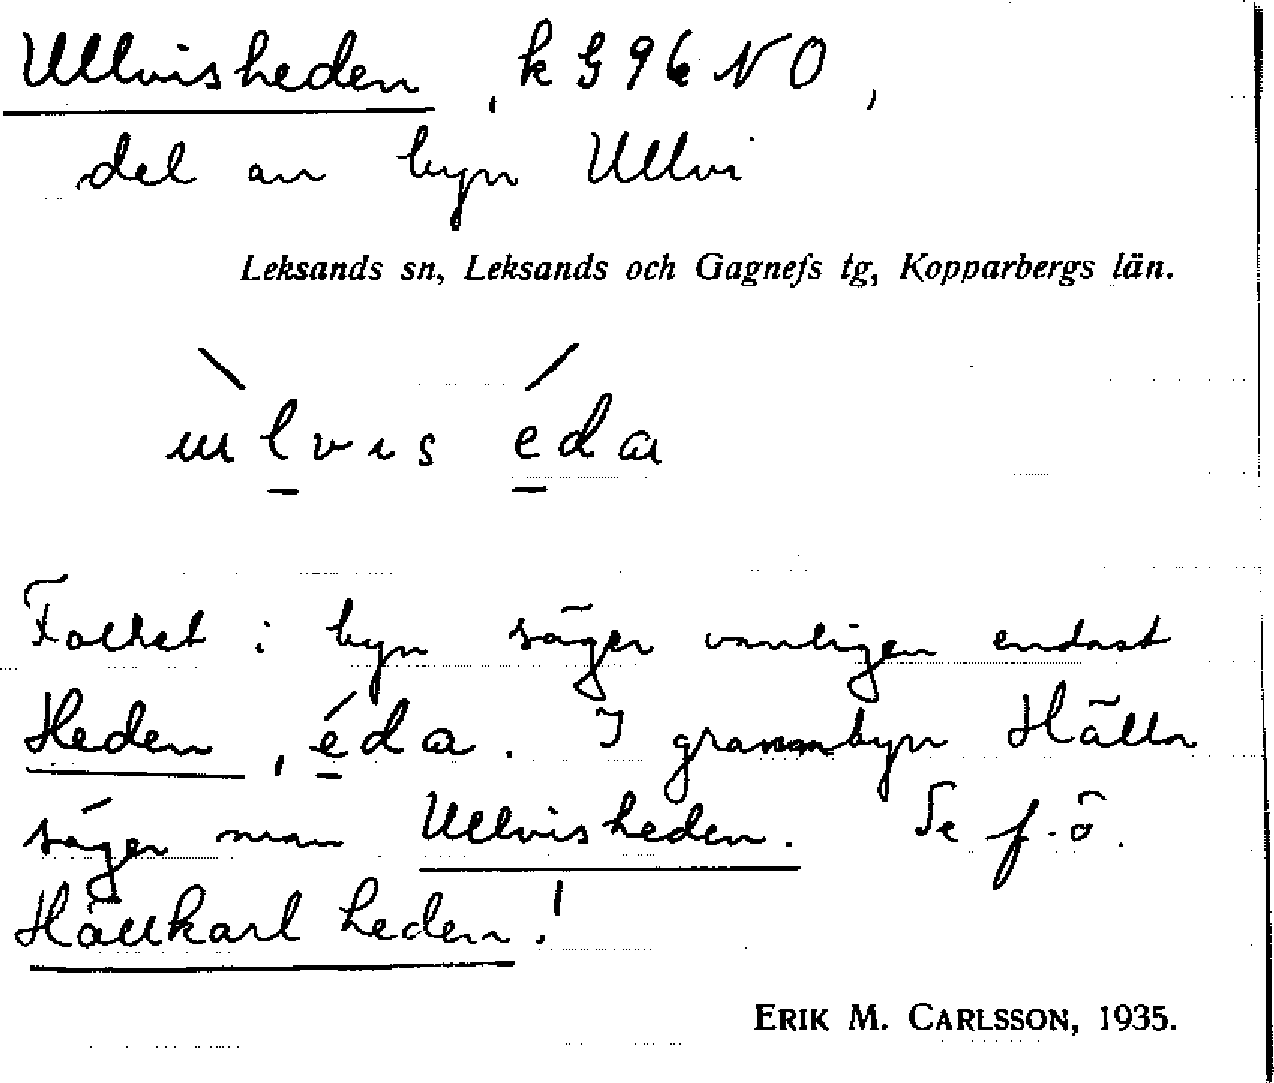 Ullvisheden, k G 96 NO,
del av byn Ullvi
Leksands sn, Leksands och Gagnefs tg, Kopparbergs län.
Folket i byn säger vanligen endast
Heden, éda. I grannbyn Hälla
säger man Ullvisheden. Se f.ö.
Hällkarlheden!
ERIK M. CARLSSON, 1935.